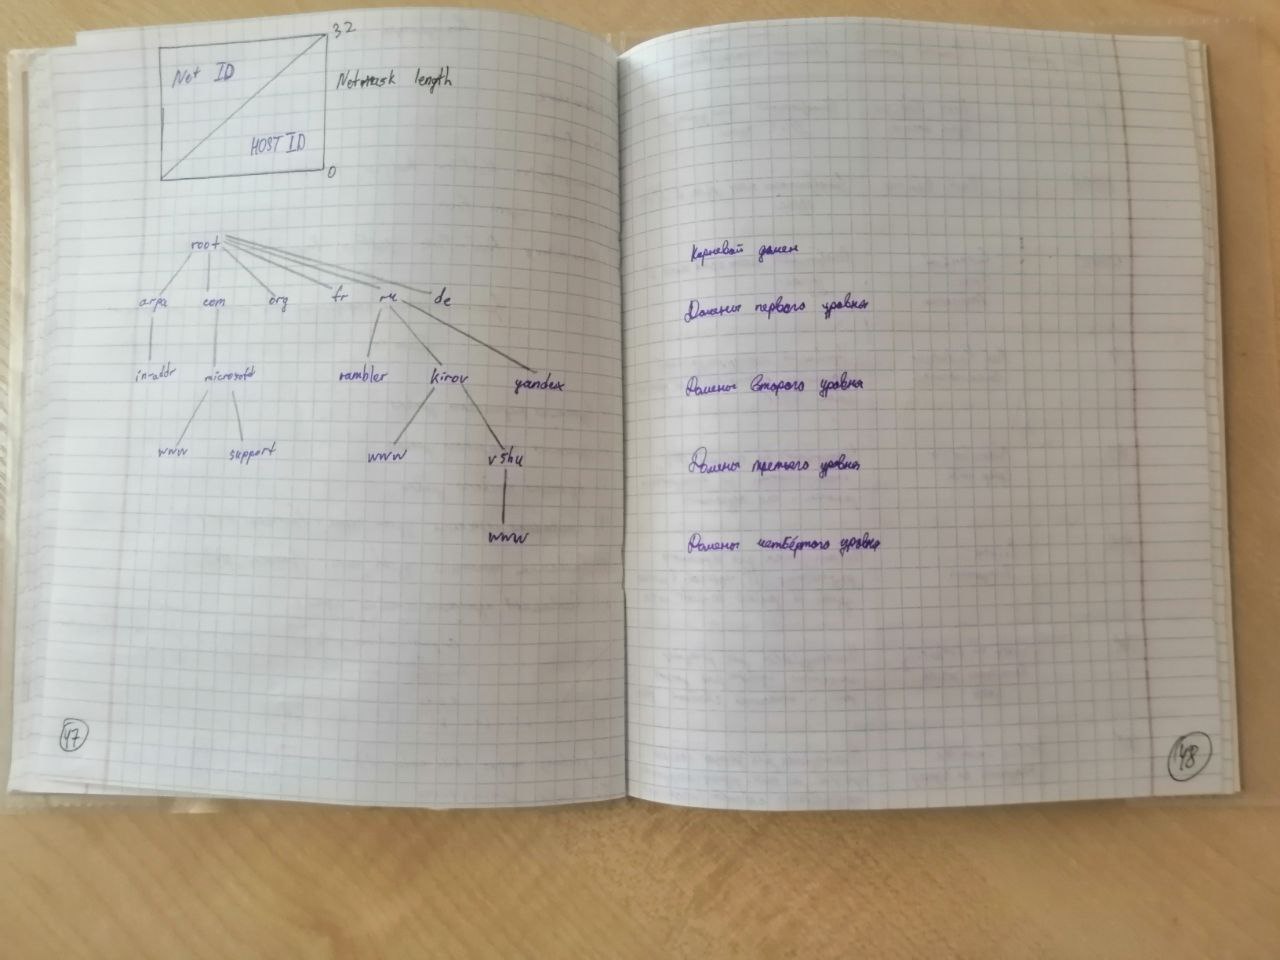 32
Net ID
Netmask length
HOST ID
0
root
arpa com org fr ru de
in-addr microsoft rambler kirov yandex
www support www vshu
www
47
Корневой домен
Домены первого уровня
Домены второго уровня
Домены третьего уровня
Домены четвёртого уровня
48